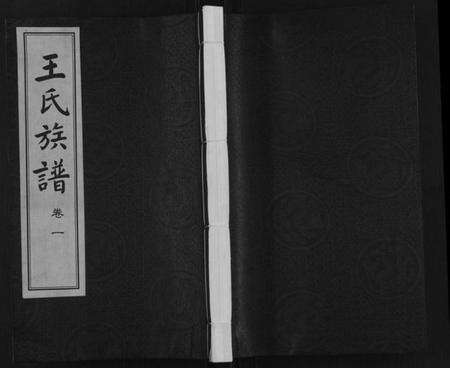 王氏族譜
卷一